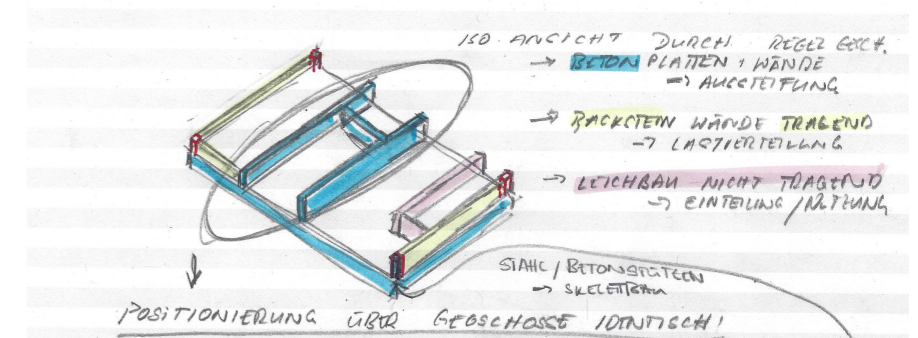 ISO. ANSICHT DURCH. REGEL GESCH.
→ BETON PLATTEN + WÄNDE
→ AUSSTEIFUNG
→ BACKSTEIN WÄNDE TRAGEND
→ LASTVERTEILUNG
→ LEICHBAU NICHT TRAGEND
→ EINTEILUNG / NUTZUNG
STAHL / BETONSTÜTZEN
→ SKELETTBAU
POSITIONIERUNG ÜBER GEGSCHOSSE IDENTISCH!